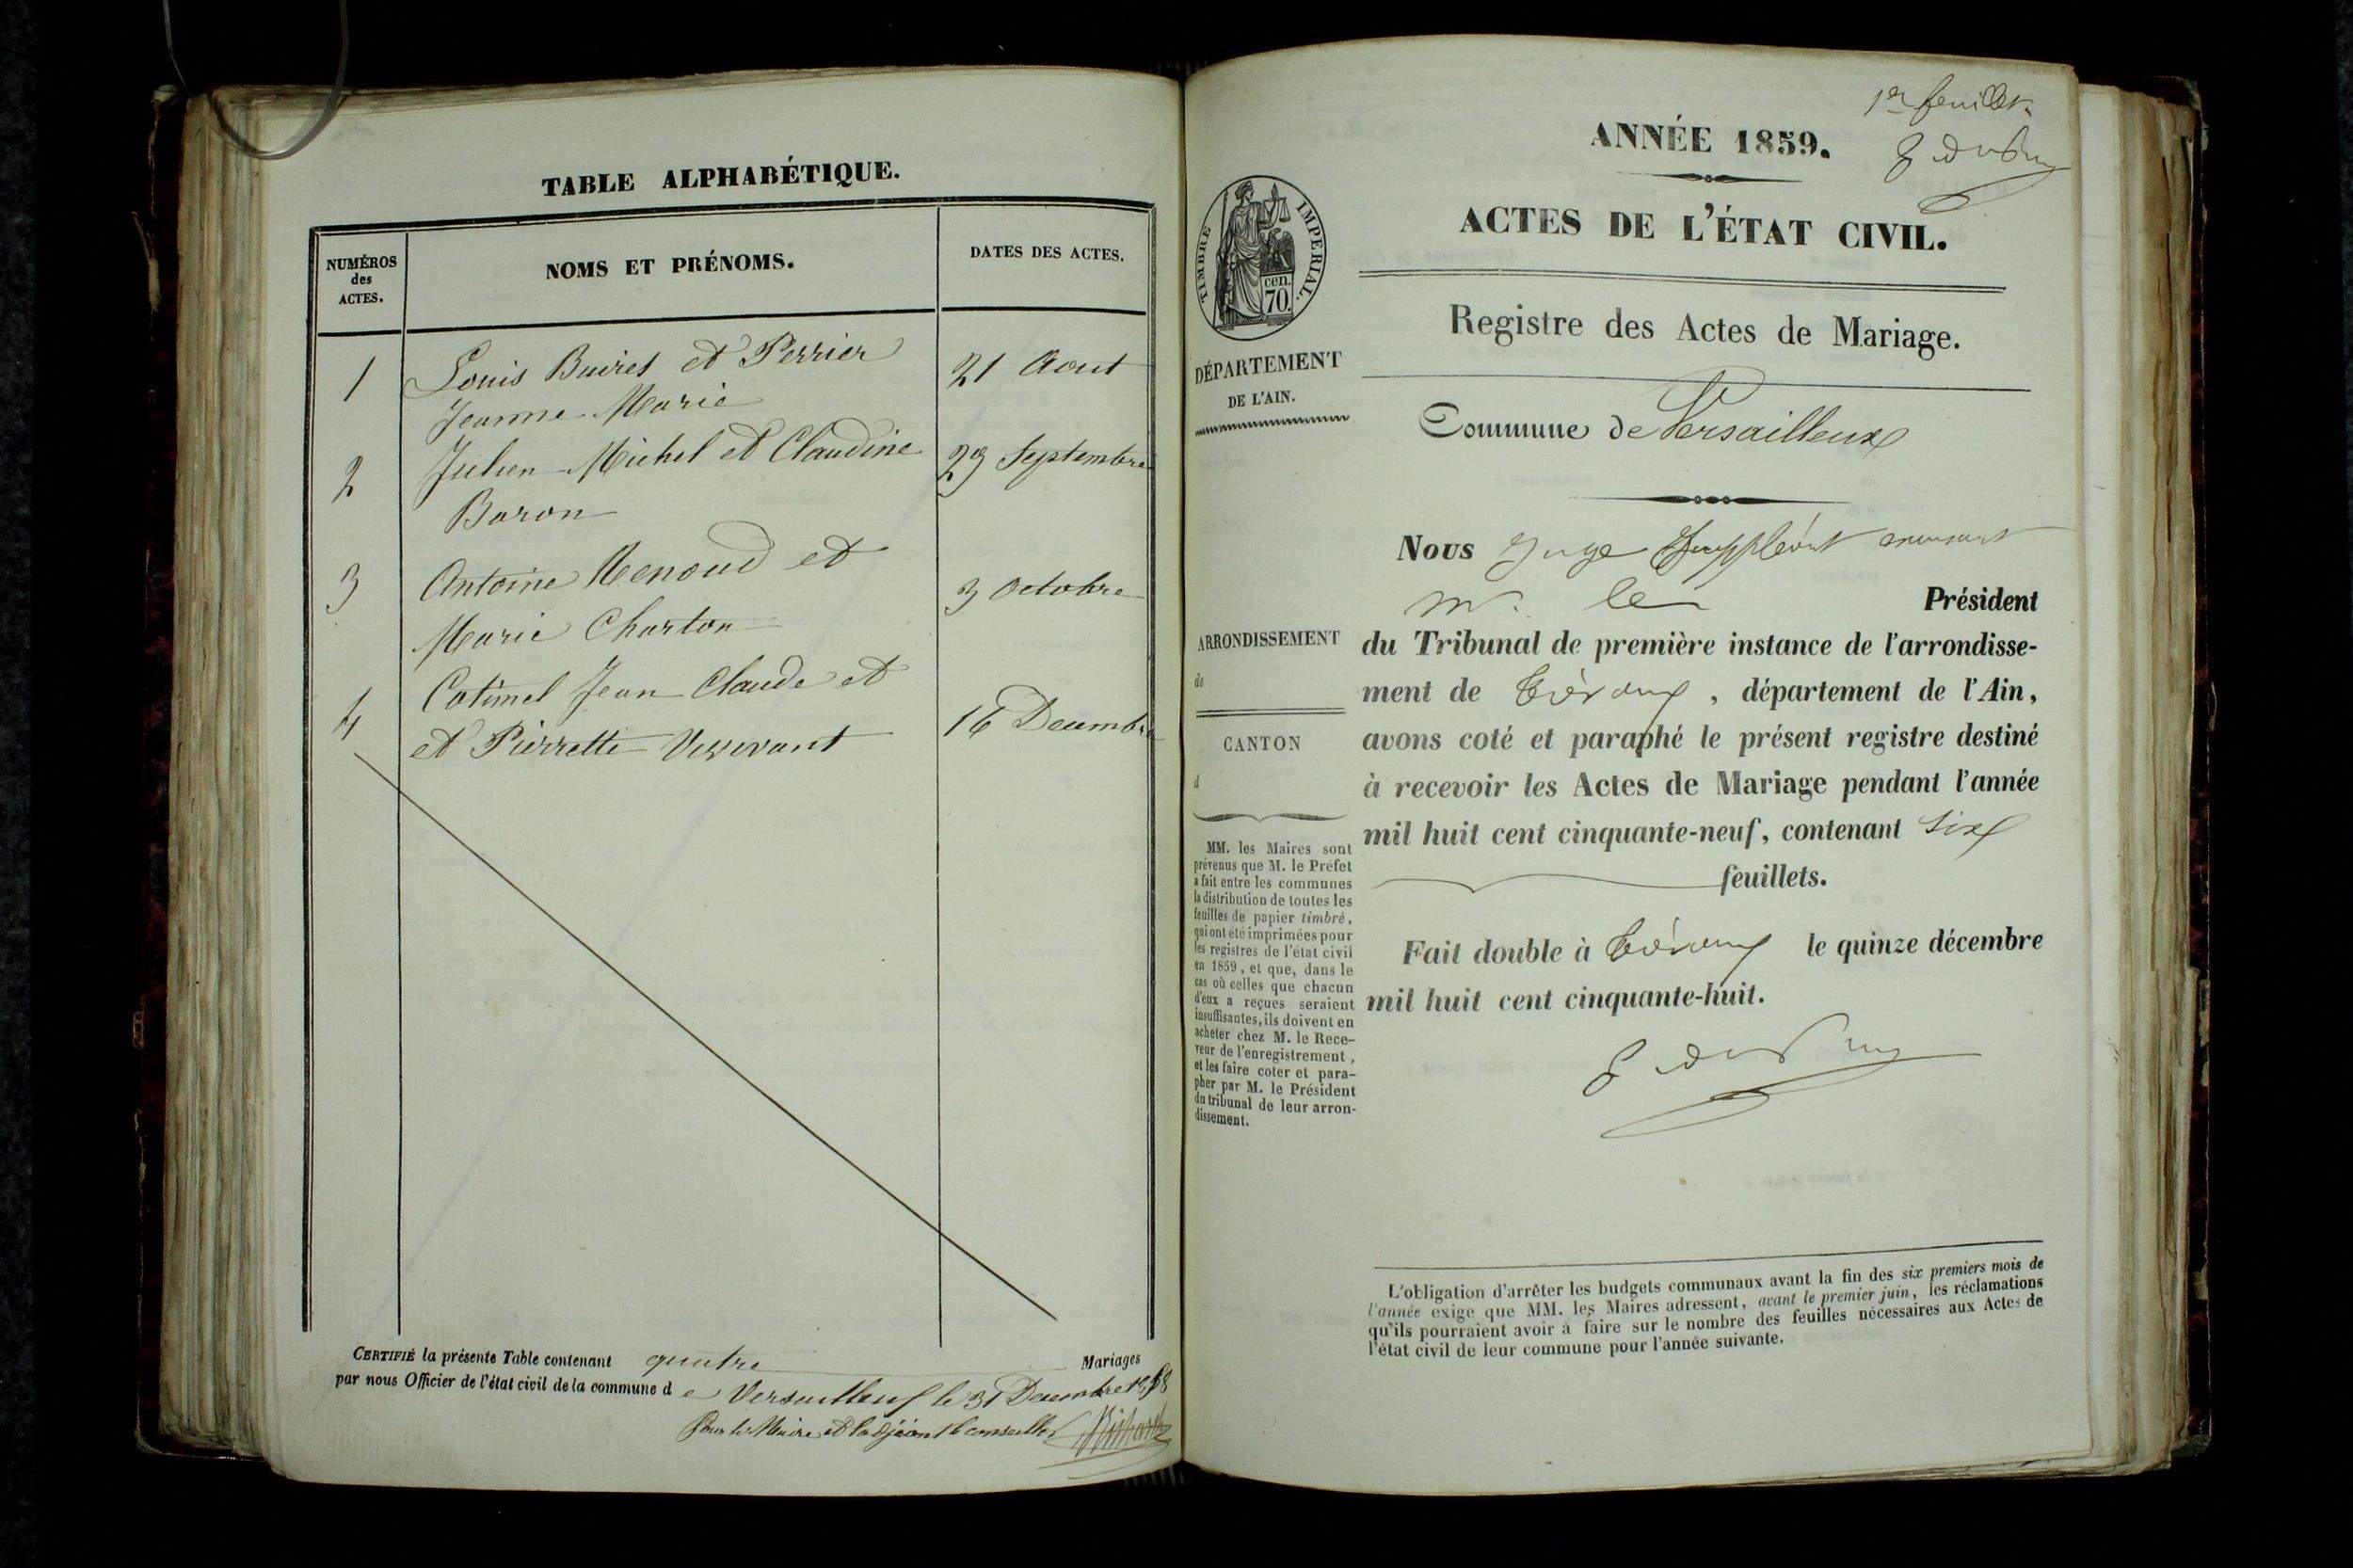 TABLE ALPHABÉTIQUE.
NUMÉROS
des
ACTES.
NOMS ET PRÉNOMS.
DATES DES ACTES.
1 Louis Buiret et Perrier 21 Aout
Jeanne Marie
2 Julien Michel et Claudine 29 Septembre
Baron
3 Antoine Renoud et 3 Octobre
Marie Charton
4 Cotimel Jean Claude et
et Pierrette 16 Decembre
CERTIFIÉ la présente Table contenant quatre Mariages
par nous Officier de l'état civil de la commune d e Versailleux le 31 Decembre 1858
Pour le Maire et l'adjoint le conseiller
1er feuillet
ANNÉE 1859.
ACTES DE L'ÉTAT CIVIL.
Registre des Actes de Mariage.
Commune de Versailleux
Nous Juge Suppléant
mr. le Président
du Tribunal de première instance de l'arrondisse-
ment de Trévoux, département de l'Ain,
avons coté et paraphé le présent registre destiné
à recevoir les Actes de Mariage pendant l'année
mil huit cent cinquante-neuf, contenant six
feuillets.
Fait double à Trévoux le quinze décembre
mil huit cent cinquante-huit.
TIMBRE IMPERIAL.
cen.
70
DÉPARTEMENT
DE L'AIN.
ARRONDISSEMENT
de
CANTON
d
MM. les Maires sont
prévenus que M. le Préfet
a fait entre les communes
la distribution de toutes les
feuilles de papier timbré,
qui ont été imprimées pour
les registres de l'état civil
en 1859, et que, dans le
cas où celles que chacun
d'eux a reçues seraient
insuffisantes, ils doivent en
acheter chez M. le Rece-
veur de l'enregistrement,
et les faire coter et para-
pher par M. le Président
du tribunal de leur arron-
dissement.
L'obligation d'arrêter les budgets communaux avant la fin des six premiers mois de
l'année exige que MM. les Maires adressent, avant le premier juin, les réclamations
qu'ils pourraient avoir à faire sur le nombre des feuilles nécessaires aux Actes de
l'état civil de leur commune pour l'année suivante.